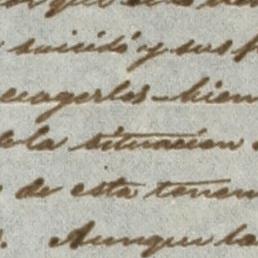 suicidó y sus
cogerlos - bien
la situación
de esta tenem
Aunque la